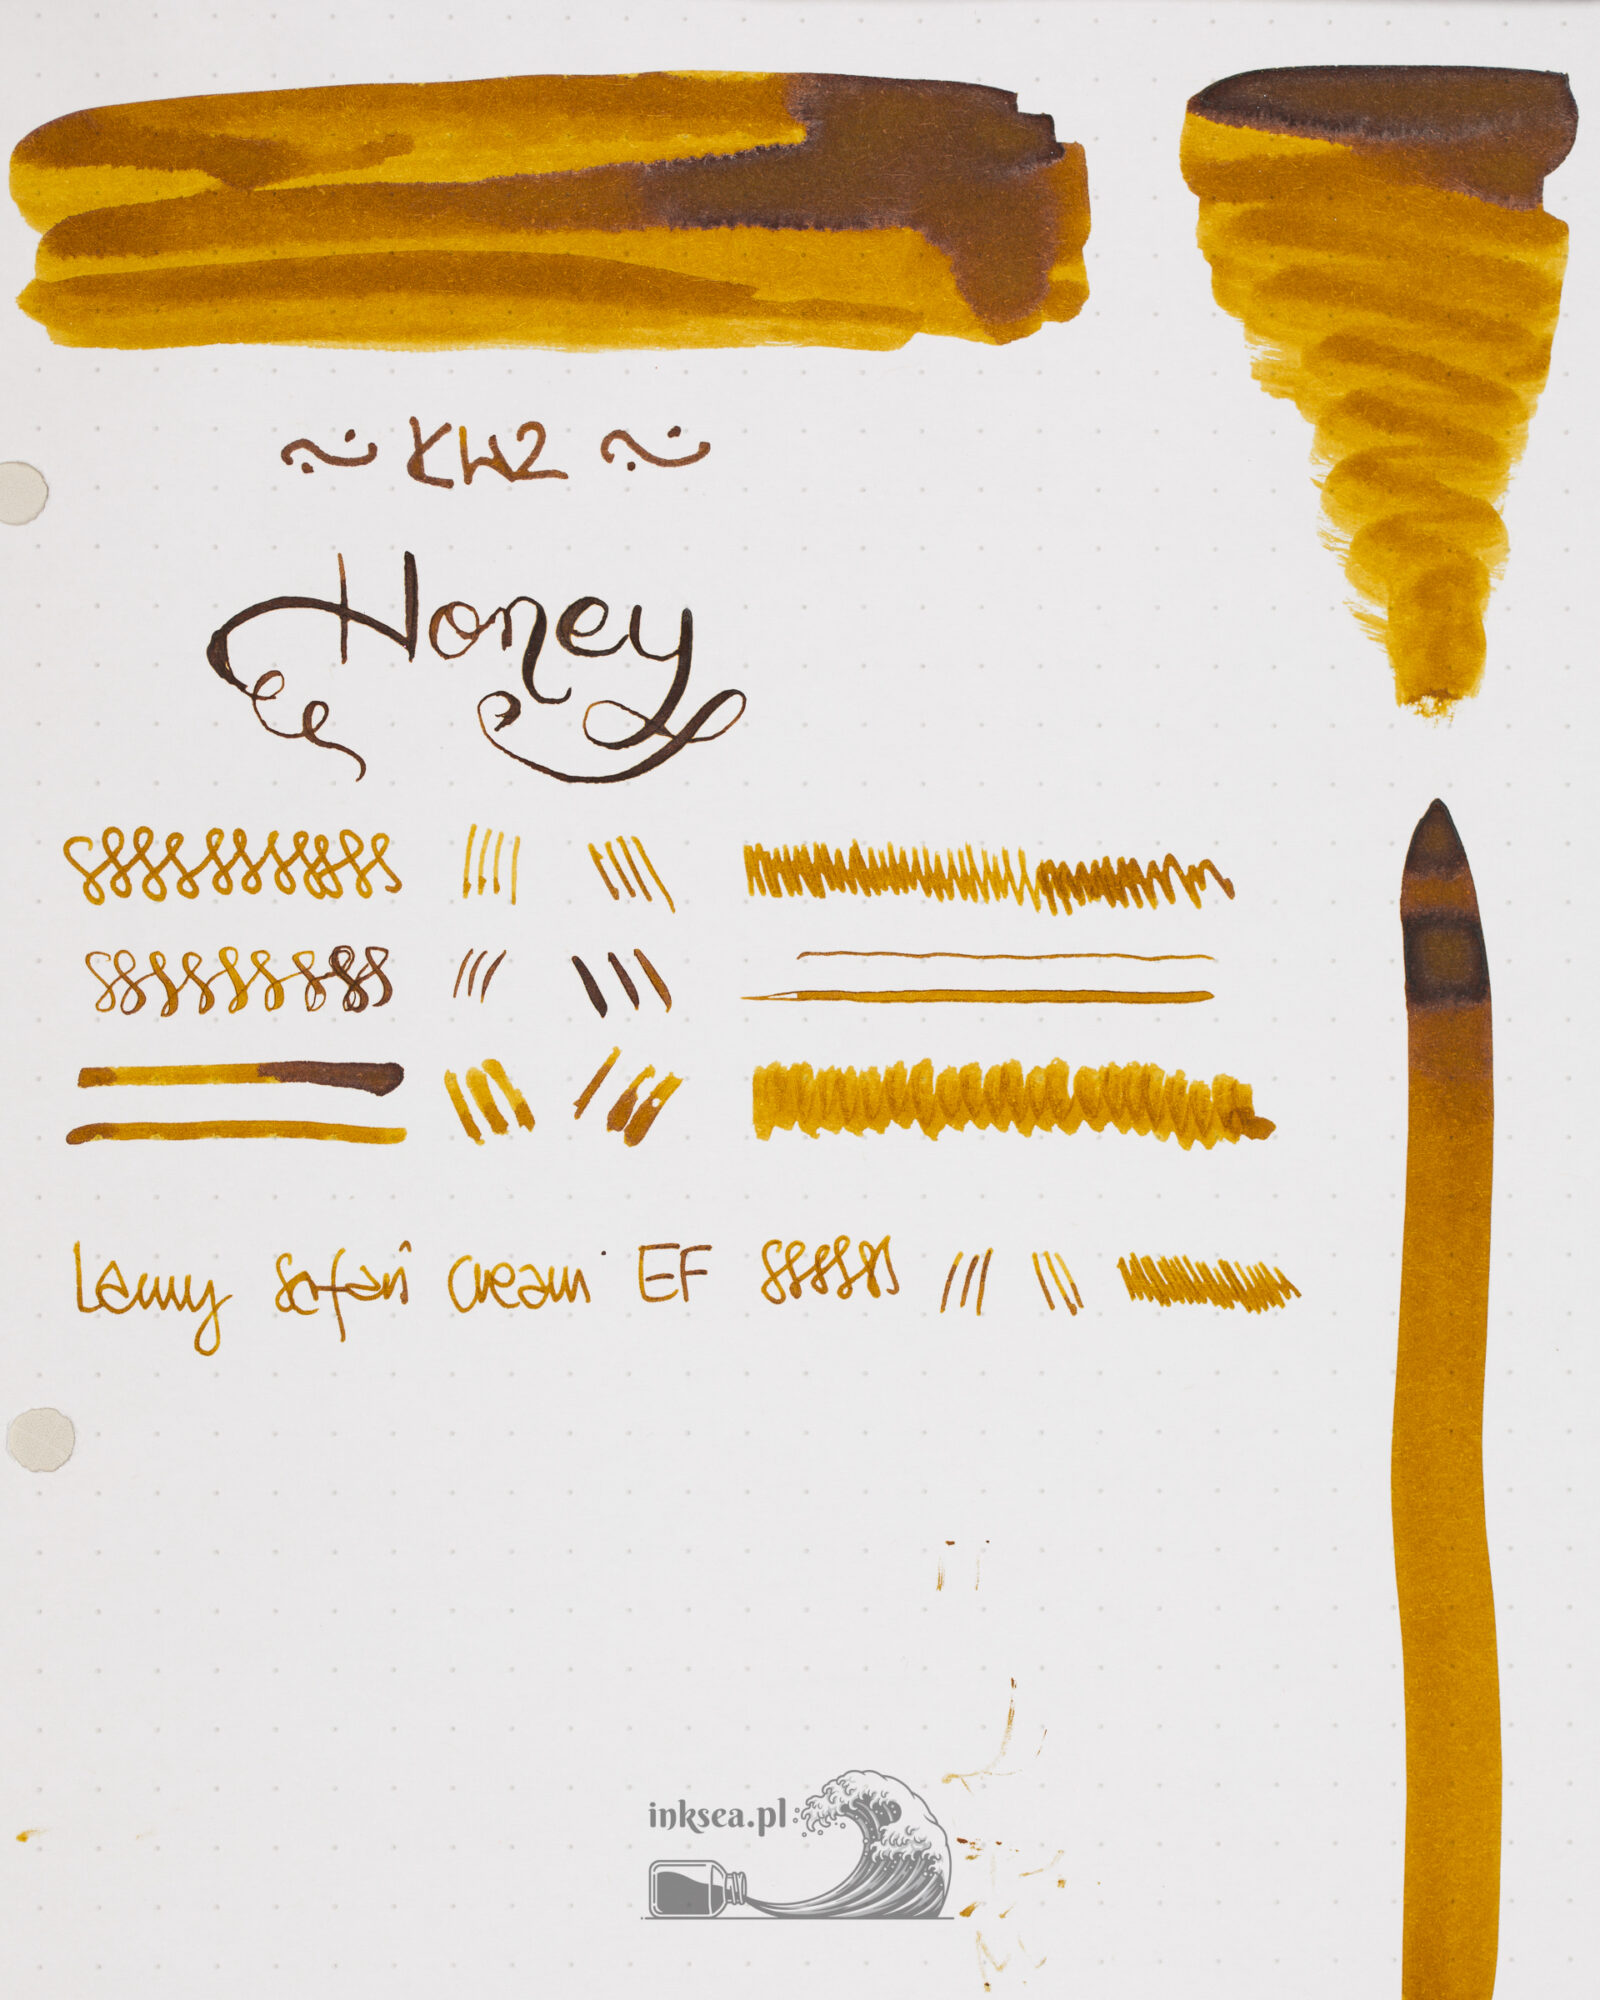 KWZ
Honey
Lamy Safari Cream EF
inksea.pl